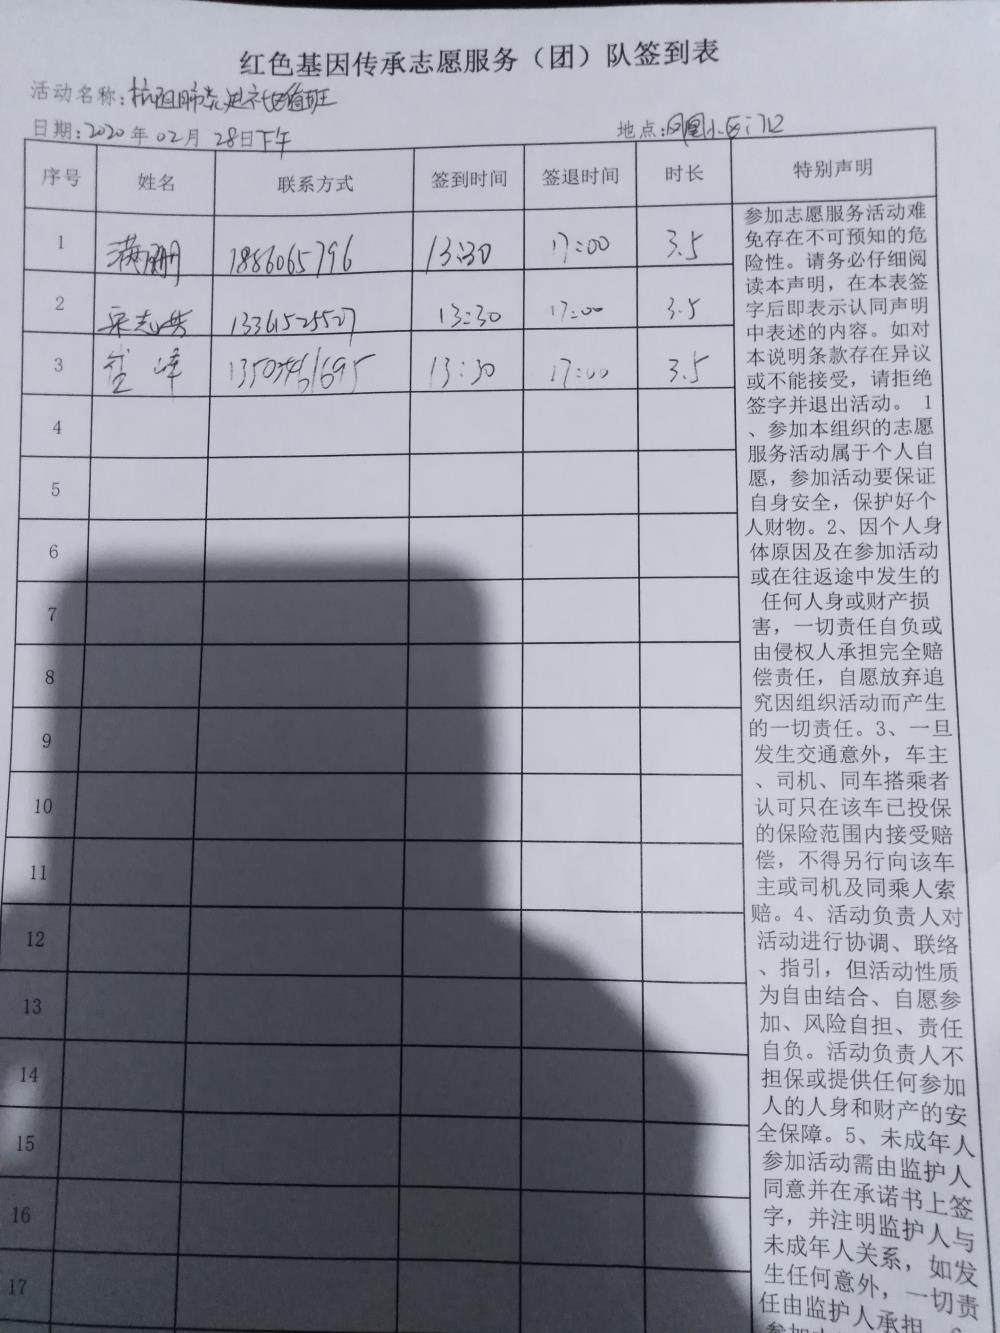 红色基因传承志愿服务（团）队签到表
活动名称:抗阻肺炎进社区值班
日期:2020年02月28日下午 地点:凤凰小区门口
序号 姓名 联系方式 签到时间 签退时间 时长 特别声明
1 满 1886065796 13:30 17:00 3.5
2 宋志 13361525527 13:30 17:00 3.5
3 峰 13:30 17:00 3.5
4
5
6
7
8
9
10
11
12
13
14
15
16
17
参加志愿服务活动难
免存在不可预知的危
险性。请务必仔细阅
读本声明，在本表签
字后即表示认同声明
中表述的内容。如对
本说明条款存在异议
或不能接受，请拒绝
签字并退出活动。 1
、参加本组织的志愿
服务活动属于个人自
愿，参加活动要保证
自身安全，保护好个
人财物。2、因个人身
体原因及在参加活动
或在往返途中发生的
任何人身或财产损
害，一切责任自负或
由侵权人承担完全赔
偿责任，自愿放弃追
究因组织活动而产生
的一切责任。3、一旦
发生交通意外，车主
、司机、同车搭乘者
认可只在该车已投保
的保险范围内接受赔
偿，不得另行向该车
主或司机及同乘人索
赔。4、活动负责人对
活动进行协调、联络
、指引，但活动性质
为自由结合、自愿参
加、风险自担、责任
自负。活动负责人不
担保或提供任何参加
人的人身和财产的安
全保障。5、未成年人
参加活动需由监护人
同意并在承诺书上签
字，并注明监护人与
未成年人关系，如发
生任何意外，一切责
任由监护人承担